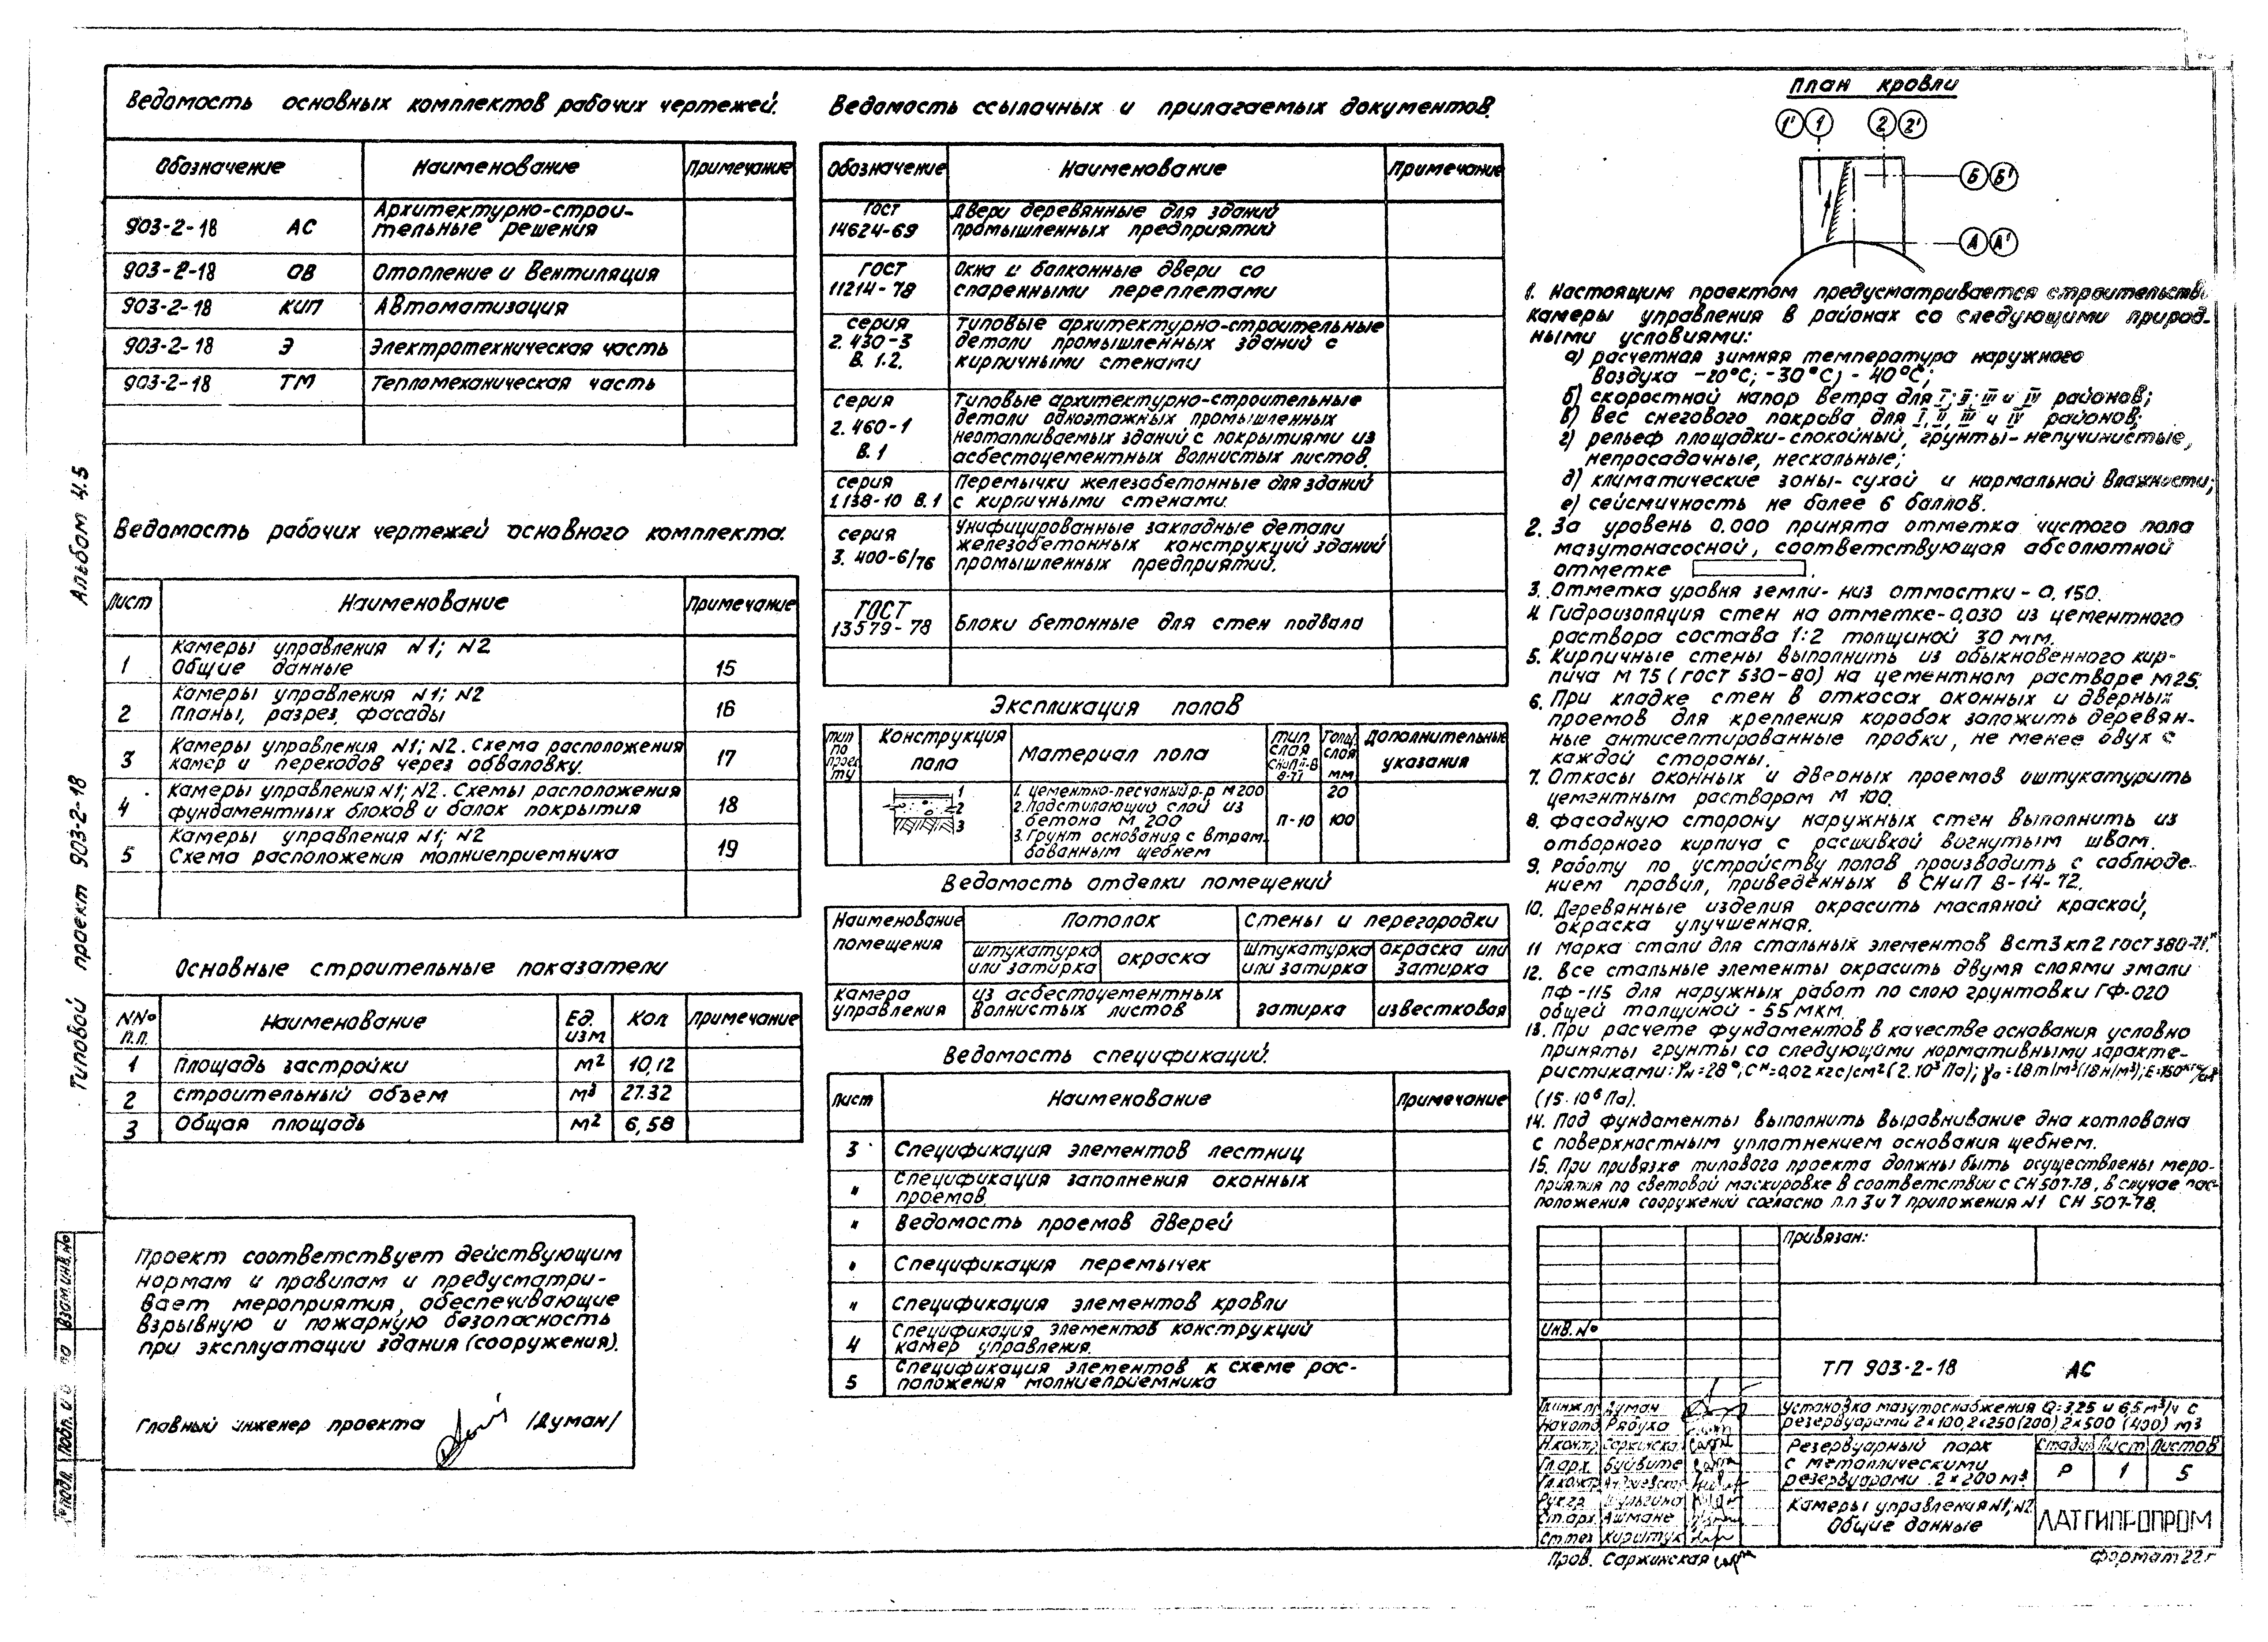 Альбом 4.5
Типовой проект 903-2-18
Ведомость основных комплектов рабочих чертежей.
Обозначение Наименование Примечание
903-2-18 АС Архитектурно-строи-
тельные решения
903-2-18 ОВ Отопление и Вентиляция
903-2-18 КИП Автоматизация
903-2-18 Э Электротехническая часть
903-2-18 ТМ Тепломеханическая часть
Ведомость рабочих чертежей основного комплекта.
Лист Наименование Примечание
Камеры управления N1; N2
1 Общие данные 15
Камеры управления N1; N2
2 Планы, разрез, фасады 16
Камеры управления N1; N2. Схема расположения
3 камер и переходов через обваловку. 17
Камеры управления N1; N2. Схемы расположения
4 фундаментных блоков и балок покрытия 18
Камеры управления N1; N2
5 Схема расположения молниеприемника 19
Основные строительные показатели
NNº
п.п. Наименование Ед.
изм Кол Примечание
1 Площадь застройки м² 10,12
2 Строительный объем м³ 27.32
3 Общая площадь м² 6,58
Проект соответствует действующим
нормам и правилам и предусматри-
вает мероприятия, обеспечивающие
взрывную и пожарную безопасность
при эксплуатации здания (сооружения).
Главный инженер проекта /Думан/
Взам.инв.Nº
Ведомость ссылочных и прилагаемых документов.
Обозначение Наименование Примечание
ГОСТ
14624-69 Двери деревянные для зданий
промышленных предприятий
ГОСТ
11214-78 Окна и балконные двери со
спаренными переплетами
серия
2.430-3
В. 1.2. Типовые архитектурно-строительные
детали промышленных зданий с
кирпичными стенами
серия
2.460-1
В.1 Типовые архитектурно-строительные
детали одноэтажных промышленных
неотапливаемых зданий с покрытиями из
асбестоцементных волнистых листов.
серия
1.138-10 В.1 Перемычки железобетонные для зданий
с кирпичными стенами.
серия
3.400-6/76 Унифицированные закладные детали
железобетонных конструкций зданий
промышленных предприятий.
ГОСТ
13579-78 Блоки бетонные для стен подвала
Экспликация полов
тип
по
проек
ту Конструкция
пола Материал пола тип
слоя
СНиП II-В
8-71 Толщ.
слоя
мм Дополнительные
указания
1
2
3
1. цементно-песчаный р-р М200 20
2. Подстилающий слой из
бетона М 200 П-10 100
3. Грунт основания с втрам-
бованным щебнем
Ведомость отделки помещений
Наименование
помещения Потолок Стены и перегородки
штукатурка
или затирка окраска штукатурка
или затирка окраска или
затирка
камера
управления из асбестоцементных
волнистых листов затирка известковая
Ведомость спецификаций.
Лист Наименование Примечание
3 Спецификация элементов лестниц
" Спецификация заполнения оконных
проемов.
" Ведомость проемов дверей
" Спецификация перемычек
" Спецификация элементов кровли
4 Спецификация элементов конструкций
камер управления.
5 Спецификация элементов к схеме рас-
положения молниеприемника
План кровли
1' 1 2 2'
Б Б'
А А'
1. Настоящим проектом предусматривается строительство
камеры управления в районах со следующими природ-
ными условиями:
а) расчетная зимняя температура наружного
воздуха -20°С; -30°С; -40°С;
б) скоростной напор ветра для I; II; III и IV районов;
в) Вес снегового покрова для I, II, III и IV районов;
г) рельеф площадки-спокойный, грунты-непучинистые,
непросадочные, нескальные;
д) климатические зоны-сухой и нормальной влажности;
е) сейсмичность не более 6 баллов.
2. За уровень 0.000 принята отметка чистого пола
мазутонасосной, соответствующая абсолютной
отметке .
3. Отметка уровня земли- низ отмостки - 0.150.
4. Гидроизоляция стен на отметке-0,030 из цементного
раствора состава 1:2 толщиной 30 мм.
5. Кирпичные стены выполнить из обыкновенного кир-
пича М 75 (ГОСТ 530-80) на цементном растворе М25.
6. При кладке стен в откосах оконных и дверных
проемов для крепления коробок заложить деревян-
ные антисептированные пробки, не менее двух с
каждой стороны.
7. Откосы оконных и дверных проемов оштукатурить
цементным раствором М 100.
8. Фасадную сторону наружных стен выполнить из
отборного кирпича с расшивкой вогнутым швом.
9. Работу по устройству полов производить с соблюде-
нием правил, приведенных в СНиП В-14-72.
10. Деревянные изделия окрасить масляной краской,
окраска улучшенная.
11 Марка стали для стальных элементов ВСт3кп2 ГОСТ 380-71.*
12. Все стальные элементы окрасить двумя слоями эмали
ПФ-115 для наружных работ по слою грунтовки ГФ-020
общей толщиной - 55 мкм.
13. При расчете фундаментов в качестве основания условно
приняты грунты со следующими нормативными характе-
ристиками: γн=28°; Сн=0,02кгс/см² (2.10³Па); γо=1.8т/м³(18н/м³); Е=150кгс/см²
(15·10⁶Па).
14. Под фундаменты выполнить выравнивание дна котлована
с поверхностным уплотнением основания щебнем.
15. При привязке типового проекта должны быть осуществлены меро-
приятия по световой маскировке в соответствии с СН 507-78, в случае рас-
положения сооружений согласно п.п 3 и 7 приложения N1 СН 507-78.
Привязан:
Инв. Nº
ТП 903-2-18 АС
Гл.инж.пр Думан
Нач.отд Рябуха
Н.контр Саржинская
Гл.арх. Буйвите
Рук.гр. Шульгина
Ст.арх. Ашмане
Ст.тех
Пров. Саржинская
Установка мазутоснабжения Q=3,25 и 6,5 м³/ч с
резервуарами 2×100, 2×250(200), 2×500 (400) м3
Резервуарный парк
с металлическими
резервуарами 2×200 м³.
Стадия Лист Листов
Р 1 5
Камеры управления N1; N2
Общие данные
ЛАТГИПРОПРОМ
формат 22г